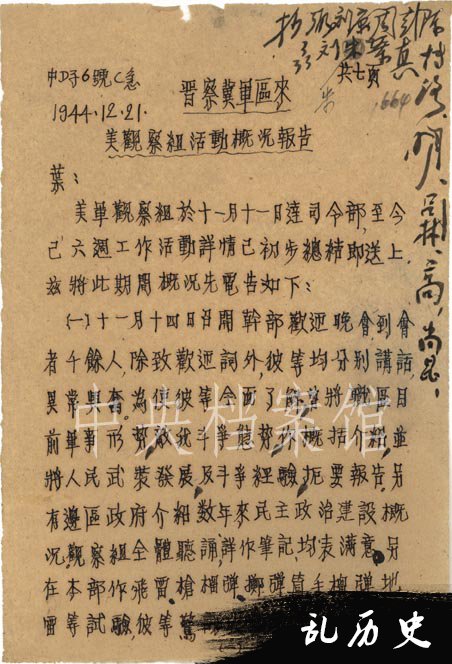 中D子6號C急
1944.12.21.
晋察冀軍區來
共七頁
664
美觀察組活動概況報告
葉：
美軍觀察組於十一月十一日達司令部，至今
已六週工作活動詳情已初步總結即送上，
兹將此期間概況先電告如下：
(一)十一月十四日召開幹部歡迎晚會，到會
者千餘人，除致歡迎詞外，彼等均分别講話，
異常興奮為使彼等全面了解曾將戰區目
前軍事形勢敵我斗爭態勢作概括介紹，並
將人民武裝發展及斗爭經驗扼要報告，另
有邊區政府介紹数年來民主政治建設概
況，觀察組全體聽誦，詳作筆記，均表滿意，另
在本部作飛雷、槍榴彈、擲彈筒手榴彈、地
雷等試驗，彼等驚
中央档案馆
乱历史